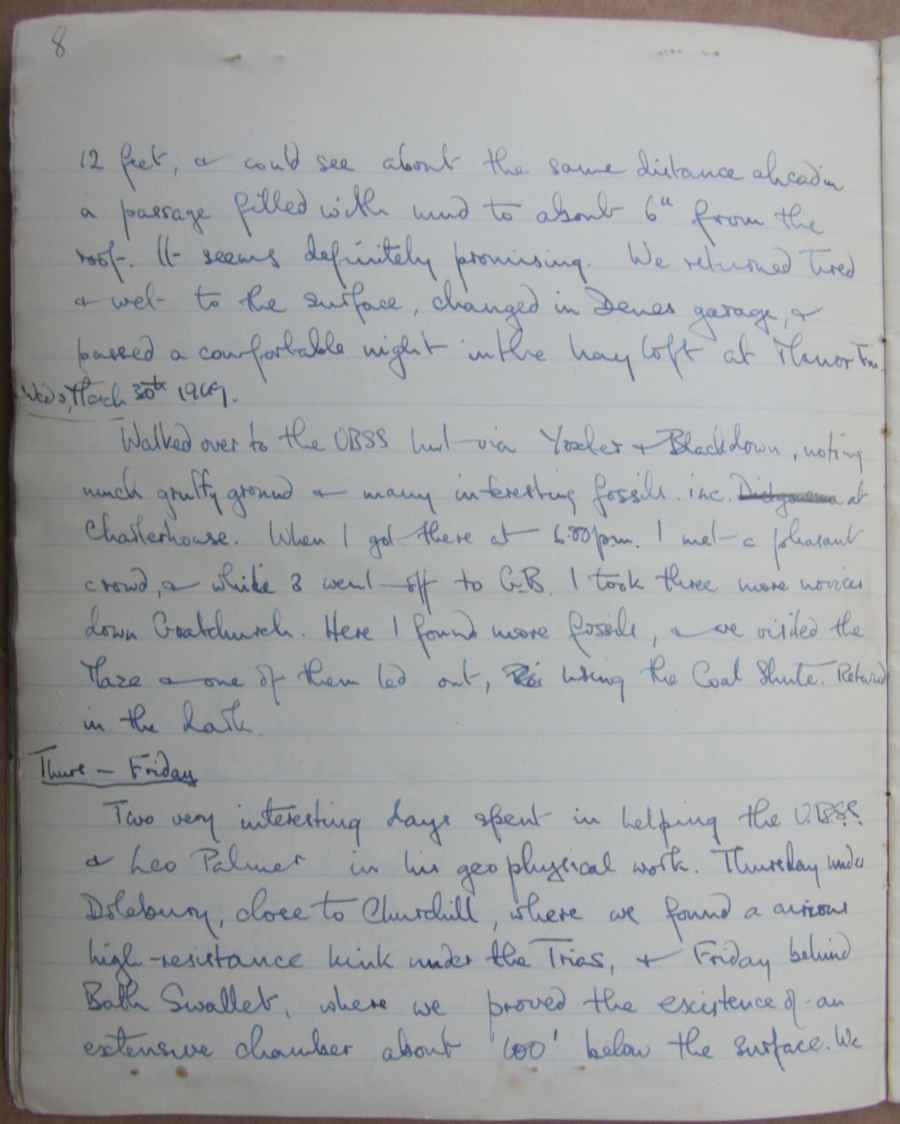 8
12 feet, & could see about the same distance ahead in
a passage filled with mud to about 6" from the
roof. It seems definitely promising. We returned tired
& wet to the surface, changed in Denes garage, &
passed a comfortable night in the hay loft at Manor Fm.
Weds, March 30th 1949.
Walked over to the UBSS hut via Yoxter & Blackdown, noting
much gruffy ground & many interesting fossils inc. at
Charterhouse. When I got there at 6.00pm. I met a pleasant
crowd, & while 3 went off to G.B. I took three more novices
down Goatchurch. Here I found more fossils, & we visited the
Maze & one of them led out, using the Coal Shute. Returned
in the dark.
Thurs - Friday
Two very interesting days spent in helping the UBSS
& Leo Palmer in his geophysical work. Thursday under
Dolebury, close to Churchill, where we found a curious
high-resistance kink under the Trias, & Friday behind
Bath Swallet, where we proved the existence of an
extensive chamber about '100' below the surface. We